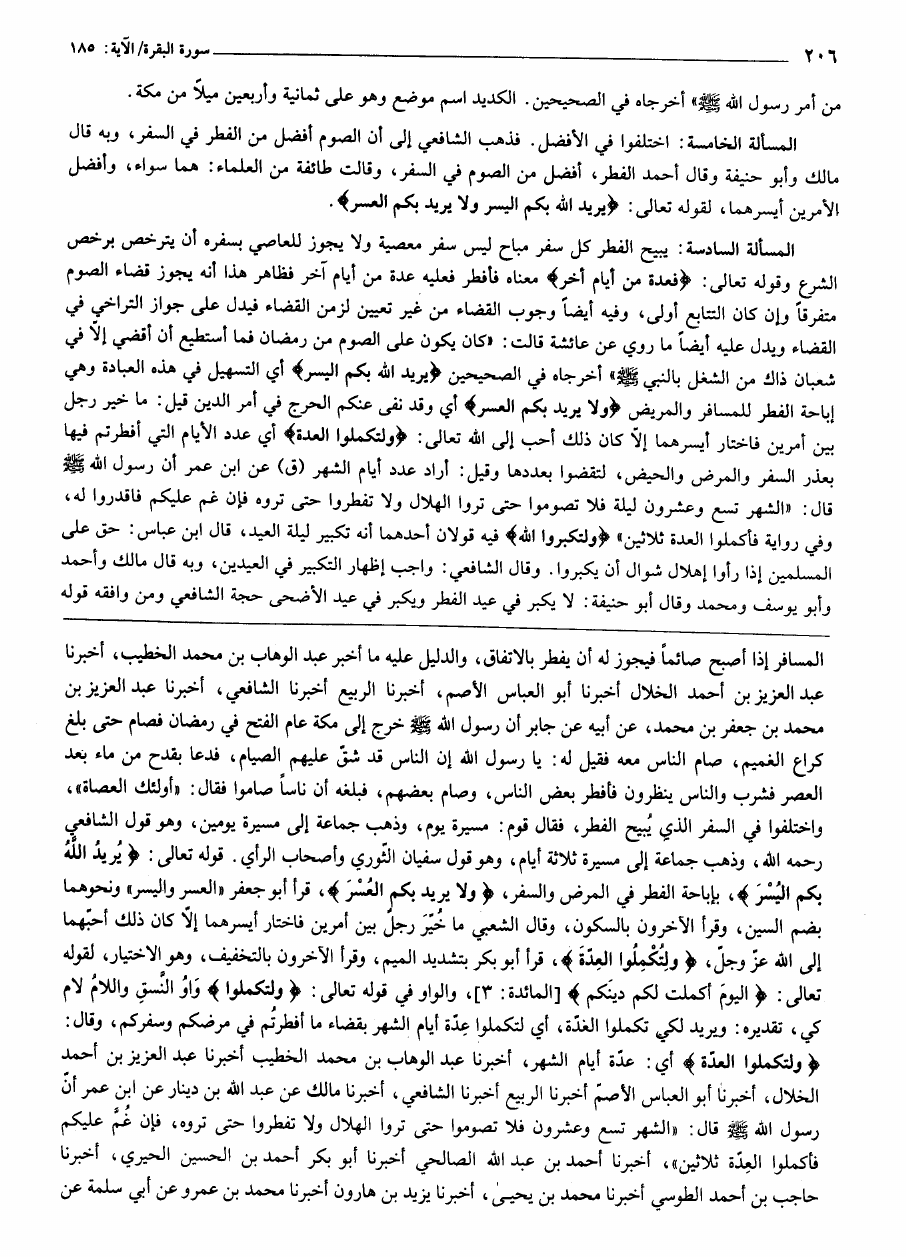 ٢٠٦ سورة البقرة/ الآية: ١٨٥
من أمر رسول الله ﷺ» أخرجاه في الصحيحين. الكديد اسم موضع وهو على ثمانية وأربعين ميلاً من مكة.
المسألة الخامسة: اختلفوا في الأفضل. فذهب الشافعي إلى أن الصوم أفضل من الفطر في السفر، وبه قال
مالك وأبو حنيفة وقال أحمد الفطر، أفضل من الصوم في السفر، وقالت طائفة من العلماء: هما سواء، وأفضل
الأمرين أيسرهما، لقوله تعالى: ﴿يريد الله بكم اليسر ولا يريد بكم العسر﴾.
المسألة السادسة: يبيح الفطر كل سفر مباح ليس سفر معصية ولا يجوز للعاصي بسفره أن يترخص برخص
الشرع وقوله تعالى: ﴿فعدة من أيام أخر﴾ معناه فأفطر فعليه عدة من أيام آخر فظاهر هذا أنه يجوز قضاء الصوم
متفرقاً وإن كان التتابع أولى، وفيه أيضاً وجوب القضاء من غير تعيين لزمن القضاء فيدل على جواز التراخي في
القضاء ويدل عليه أيضاً ما روي عن عائشة قالت: «كان يكون على الصوم من رمضان فما أستطيع أن أقضي إلّا في
شعبان ذاك من الشغل بالنبي ﷺ» أخرجاه في الصحيحين ﴿يريد الله بكم اليسر﴾ أي التسهيل في هذه العبادة وهي
إباحة الفطر للمسافر والمريض ﴿ولا يريد بكم العسر﴾ أي وقد نفى عنكم الحرج في أمر الدين قيل: ما خير رجل
بين أمرين فاختار أيسرهما إلّا كان ذلك أحب إلى الله تعالى: ﴿ولتكملوا العدة﴾ أي عدد الأيام التي أفطرتم فيها
بعذر السفر والمرض والحيض، لتقضوا بعددها وقيل: أراد عدد أيام الشهر (ق) عن ابن عمر أن رسول الله ﷺ
قال: «الشهر تسع وعشرون ليلة فلا تصوموا حتى تروا الهلال ولا تفطروا حتى تروه فإن غم عليكم فاقدروا له،
وفي رواية فأكملوا العدة ثلاثين» ﴿ولتكبروا الله﴾ فيه قولان أحدهما أنه تكبير ليلة العيد، قال ابن عباس: حق على
المسلمين إذا رأوا إهلال شوال أن يكبروا. وقال الشافعي: واجب إظهار التكبير في العيدين، وبه قال مالك وأحمد
وأبو يوسف ومحمد وقال أبو حنيفة: لا يكبر في عيد الفطر ويكبر في عيد الأضحى حجة الشافعي ومن وافقه قوله
المسافر إذا أصبح صائماً فيجوز له أن يفطر بالاتفاق، والدليل عليه ما أخبر عبد الوهاب بن محمد الخطيب، أخبرنا
عبد العزيز بن أحمد الخلال أخبرنا أبو العباس الأصم، أخبرنا الربيع أخبرنا الشافعي، أخبرنا عبد العزيز بن
محمد بن جعفر بن محمد، عن أبيه عن جابر أن رسول الله ﷺ خرج إلى مكة عام الفتح في رمضان فصام حتى بلغ
كراع الغميم، صام الناس معه فقيل له: يا رسول الله إن الناس قد شقّ عليهم الصيام، فدعا بقدح من ماء بعد
العصر فشرب والناس ينظرون فأفطر بعض الناس، وصام بعضهم، فبلغه أن ناساً صاموا فقال: «أولئك العصاة»،
واختلفوا في السفر الذي يُبيح الفطر، فقال قوم: مسيرة يوم، وذهب جماعة إلى مسيرة يومين، وهو قول الشافعي
رحمه الله، وذهب جماعة إلى مسيرة ثلاثة أيام، وهو قول سفيان الثّوري وأصحاب الرأي. قوله تعالى: ﴿ يُريدُ اللَّهُ
بكم اليُسْرَ ﴾، بإباحة الفطر في المرض والسفر، ﴿ ولا يريد بكم العُسْرَ ﴾، قرأ أبو جعفر «العسر واليسر» ونحوهما
بضم السين، وقرأ الآخرون بالسكون، وقال الشعبي ما خُيِّرَ رجلٌ بين أمرين فاختار أيسرهما إلّا كان ذلك أحبّهما
إلى الله عزّ وجلّ، ﴿ ولِتُكْمِلُوا العِدّةَ ﴾، قرأ أبو بكر بتشديد الميم، وقرأ الآخرون بالتخفيف، وهو الاختيار، لقوله
تعالى: ﴿ اليومَ أكملت لكم دينَكم ﴾ [المائدة: ٣]، والواو في قوله تعالى: ﴿ ولتكملوا ﴾ وَاوُ النَّسقِ واللامُ لام
كي، تقديره: ويريد لكي تكملوا الغدّة، أي لتكملوا عِدّة أيام الشهر بقضاء ما أفطرتُم في مرضكم وسفركم، وقال:
﴿ ولتكملوا العدّة ﴾ أي: عدّة أيام الشهر، أخبرنا عبد الوهاب بن محمد الخطيب أخبرنا عبد العزيز بن أحمد
الخلال، أخبرنا أبو العباس الأصمّ أخبرنا الربيع أخبرنا الشافعي، أخبرنا مالك عن عبد الله بن دينار عن ابن عمر أنّ
رسول الله ﷺ قال: «الشهر تسع وعشرون فلا تصوموا حتى تروا الهلال ولا تفطروا حتى تروه، فإن غُمَّ عليكم
فأكملوا العِدّة ثلاثين»، أخبرنا أحمد بن عبد الله الصالحي أخبرنا أبو بكر أحمد بن الحسين الحيري، أخبرنا
حاجب بن أحمد الطوسي أخبرنا محمد بن يحيىٰ، أخبرنا يزيد بن هارون أخبرنا محمد بن عمرو عن أبي سلمة عن